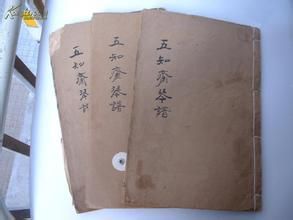 五知齋琴譜
五知齋琴譜
五知齋琴譜